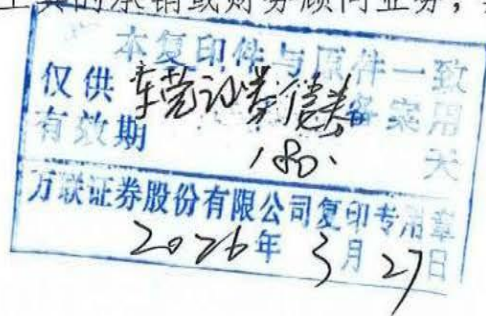 工具的承销或财务顾问业务，
本复印件与原件一致
仅供东莞证券债券备案用
有效期180天
万联证券股份有限公司复印专用章
2026年3月27日